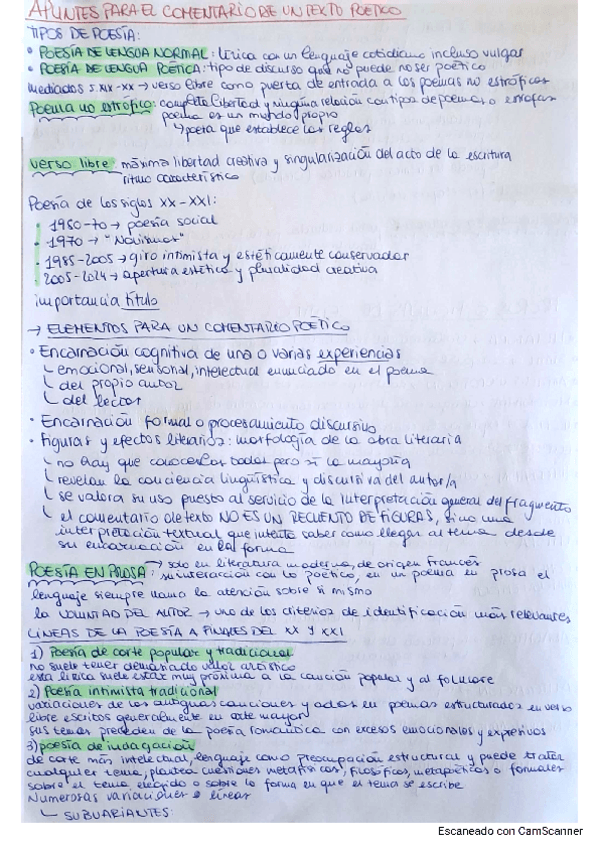 APUNTES PARA EL COMENTARIO DE UN TEXTO POÉTICO
TIPOS DE POESÍA:
• POESÍA DE LENGUA NORMAL: lírica con un lenguaje cotidiano incluso vulgar
• POESÍA DE LENGUA POÉTICA: tipo de discurso que no puede no ser poético
mediados s.XIX-XX → verso libre como puerta de entrada a los poemas no estróficos
Poema no estrófico: completa libertad y ninguna relación con tipos de poemas o estrofas
poema es un mundo propio
↳ poeta que establece las reglas
verso libre máxima libertad creativa y singularización del acto de la escritura
ritmo característico
Poesía de los siglos XX-XXI:
• 1960-70 → poesía social
• 1970 → "Novísimos"
• 1985-2005 → giro intimista y estéticamente conservador
• 2005-2024 → apertura estética y pluralidad creativa
importancia título
→ ELEMENTOS PARA UN COMENTARIO POÉTICO
• Encarnación cognitiva de una o varias experiencias
emocional, sensorial, intelectual enunciado en el poema
del propio autor
del lector
• Encarnación formal o procesamiento discursivo
• Figuras y efectos literarios: morfología de la obra literaria
no hay que conocerlas todas pero sí la mayoría
revelan la conciencia lingüística y discursiva del autor/a
se valora su uso puesto al servicio de la interpretación general del fragmento
el comentario de texto NO ES UN RECUENTO DE FIGURAS, sino una
interpretación textual que intenta saber como llegar al tema desde
su encarnación en la forma
POESÍA EN PROSA → solo en literatura moderna, de origen francés
su interacción con lo poético, en un poema en prosa el
lenguaje siempre llama la atención sobre sí mismo
la VOLUNTAD DEL AUTOR → uno de los criterios de identificación más relevantes
LÍNEAS DE LA POESÍA A FINALES DEL XX Y XXI
1) Poesía de corte popular y tradicional
no suele tener demasiado valor artístico
esta lírica suele estar muy próxima a la canción popular y al folklore
2) Poesía intimista tradicional
variaciones de las antiguas canciones y odas en poemas estructurados en verso
libre escritos generalmente en arte mayor
sus temas proceden de la poesía romántica con excesos emocionales y expresivos
3) poesía de indagación
de corte más intelectual, lenguaje como preocupación estructural y puede tratar
cualquier tema, plantea cuestiones metafísicas, filosóficas, metapoéticas o formales
sobre el tema elegido o sobre la forma en que el tema se escribe
Numerosas variaciones o líneas
SUBVARIANTES:
Escaneado con CamScanner